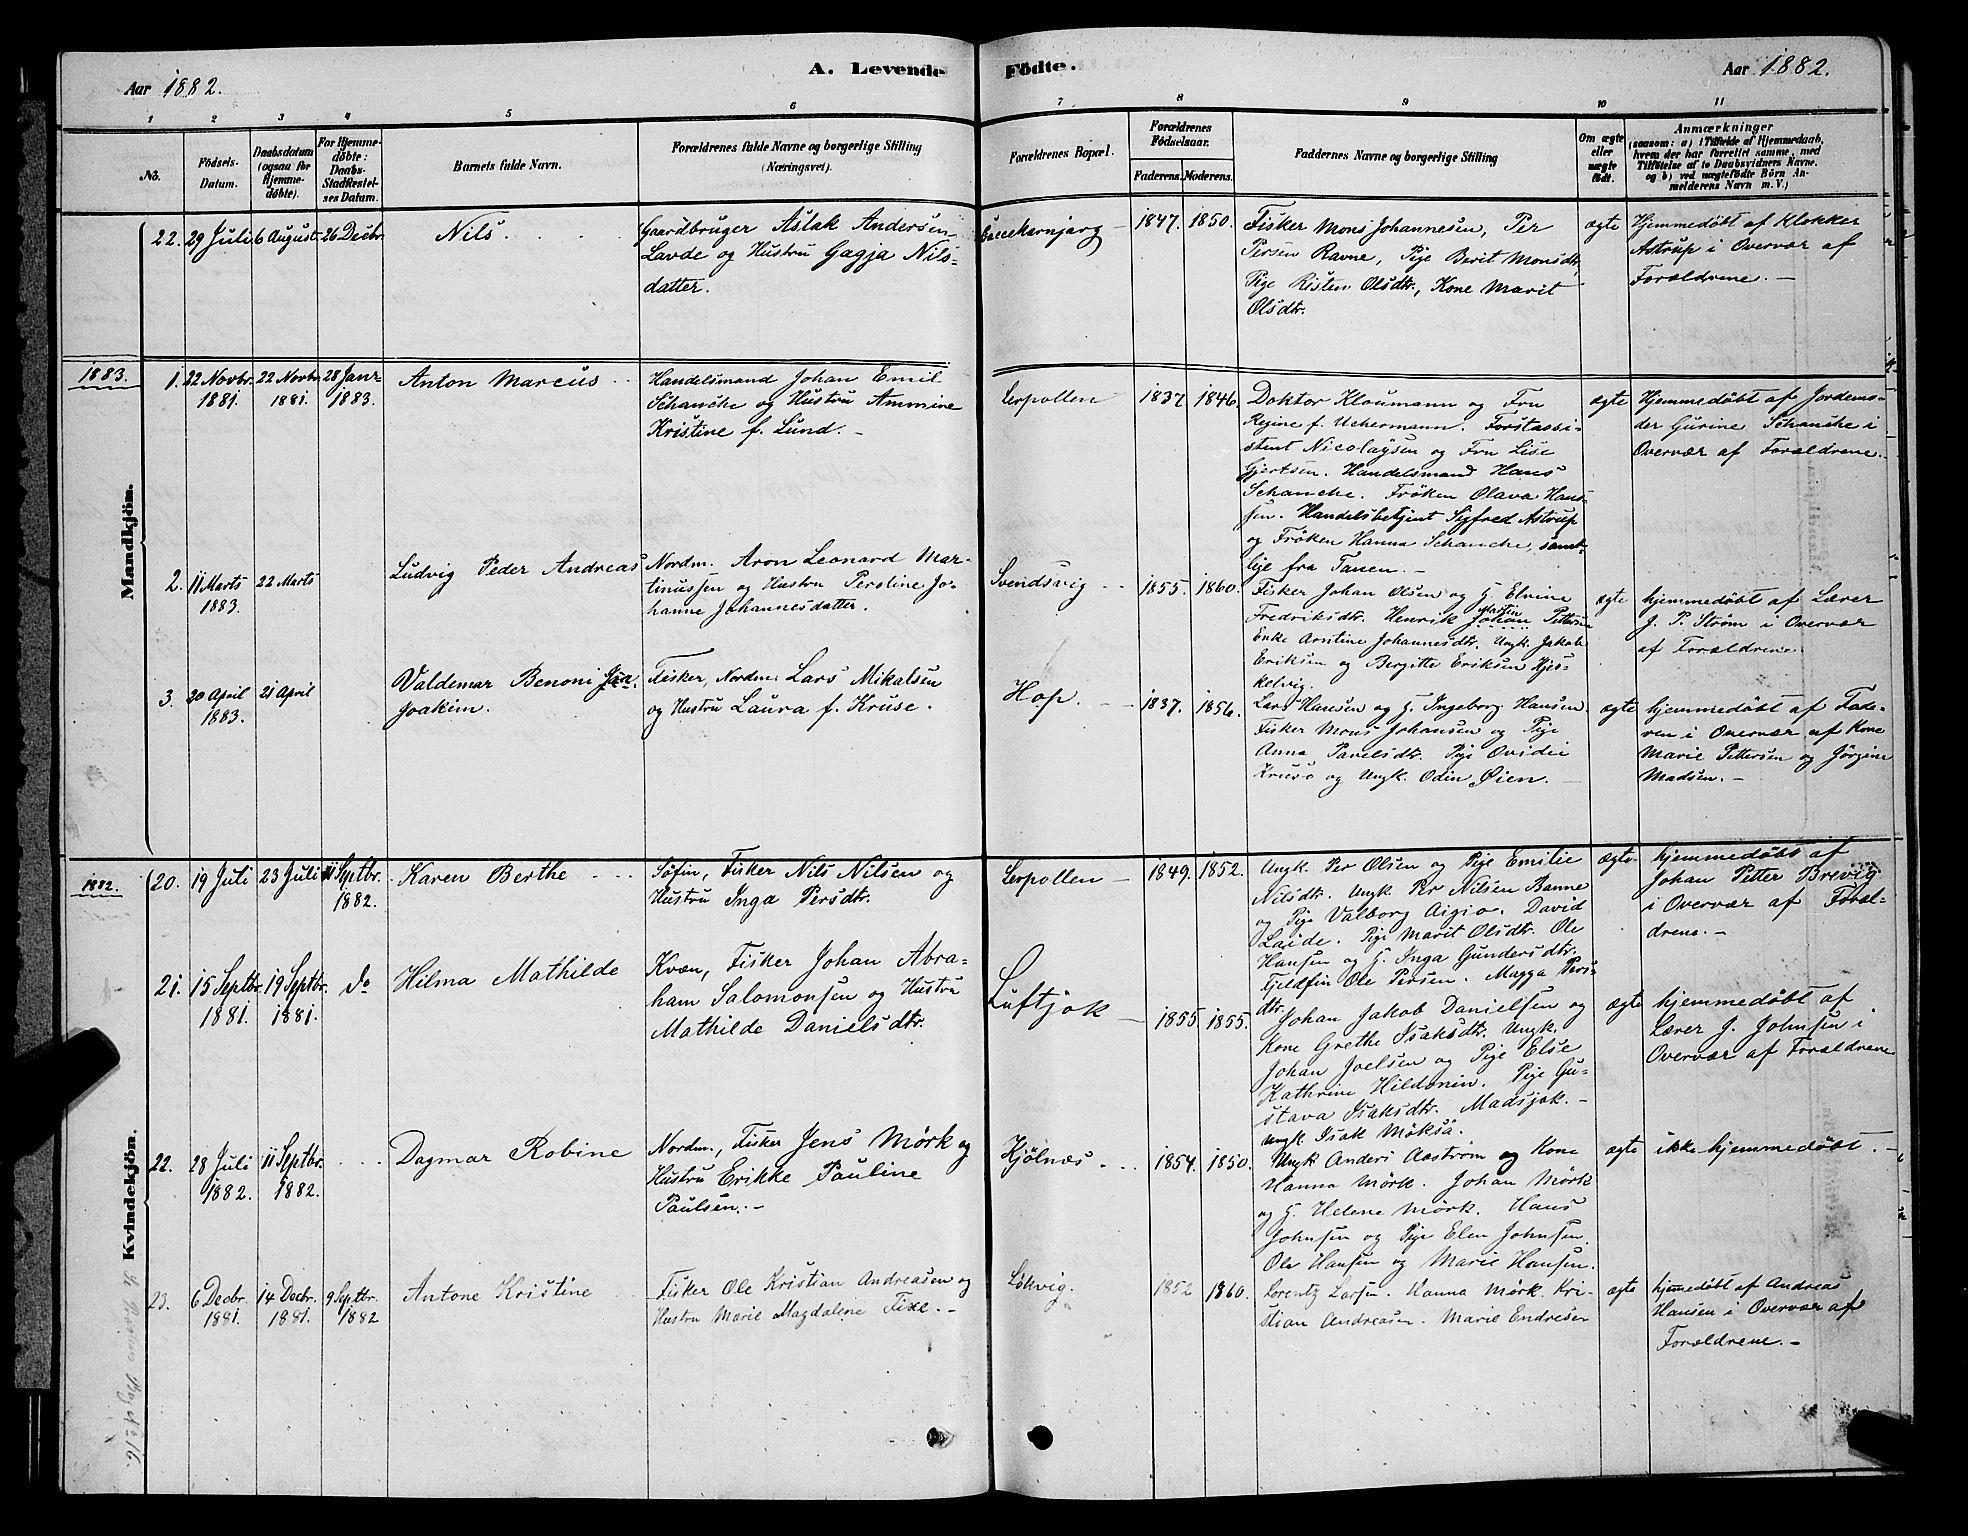 Aar 1882.
A. Levende
Födte.
Aar 1882.
1 2 3 4 5 6
7 8 9 10 11
No.
Födsels-
Datum.
Daabsdatum
(ogsaa for
Hjemme-
døbte).
For Hjemme-
døbte:
Daabs-
Stadfæstel-
ses Datum.
Barnets fulde Navn.
Forældrenes fulde Navne og borgerlige Stilling
(Næringsvei).
Forældrenes Bopæl.
Forældrenes
Födselsaar.
Faderens. Moderens.
Faddernes Navne og borgerlige Stilling
Om ægte
eller
uægte
født.
Anmærkninger
(saasom: a) i Tilfælde af Hjemmedaab,
hvem der har forrettet samme, med
Tilføielse af to Daabsvidners Navne,
og b) ved uægtefödte Börn An-
melderens Navn m. V.)
Mandkjön.
22. 29 Juli 6 August. 26 Decbr.
Nils.
Gaardbruger Aslak Andersen
Lavde og Hustru Gagja Nils-
datter.
1847. 1850.
Fisker Mons Johannesen, Per
Persen Ravne, Pige Berit Monsdtr.
Pige Risten Olsdtr., Kone Marit
Olsdtr.
ægte
Hjemmedøbt af Klokker
Astrup i Overvær af
Forældrene. -
1883.
1. 22 Novbr. 22 Novbr. 28 Janr-
1881. 1881. 1883.
Anton Marcus
Handelsmand Johan Emil
Schanche og Hustru Ammine
Kristine f. Lund. -
Leerpollen
1837. 1846.
Doktor Kloumann og Fru
Regine f. Uchermann. Forstassi-
stent Nicolaysen og Fru Lise
Gjertsen. Handelsmand Hans
Schanche. Frøken Olava Hans-
sen. Handelsbetjent Sigfred Astrup
og Frøken Hanna Schanche, samt-
lige fra Tanen. -
ægte
Hjemmedøbt af Jordemo-
der Gurine Schanche i
Overvær af Forældrene.
2. 11 Marts 22 Marts
1883.
Ludvig Peder Andreas
Nordm. Aron Leonard Mar-
tinussen og Hustru Peroline Jo-
hanne Johannesdatter.
Svendsvig
1855. 1860.
Fisker Johan Olsen og H. Elvine
Fredriksdtr. Henrik Johan Pettersen
Martin
Enke Arntine Johannesdtr. Ungk. Jakob
Eriksen og Bergitte Eriksen Hjes-
kelvig.
ægte
hjemmedøbt af Lærer
J. P. Strøm i Overvær
af Forældrene.
3. 20 April 21 April
1883.
Valdemar Benoni
Joakim.
Fisker, Nordm: Lars Mikalsen
og Hustru Laura f. Kruse.
Hop.
1837. 1856.
Lars Hansen og H. Ingeborg Hansen.
Fisker Mons Johansen og Pige
Anna Pavelsdtr. Pige Ovidei
Kruse og Ungk. Odin Øien. -
ægte
hjemmedøbt af Fade-
ren i Overvær af Kone
Marie Pettersen og Jörgine
Madsen. -
1882.
Kvindekjön.
20. 19 Juli 23 Juli 11 Septbr.
1882.
Karen Berthe
Søfin, Fisker Nils Nilsen og
Hustru Inga Persdtr.
Leerpollen
1849. 1852.
Ungk. Per Olsen og Pige Emilie
Nilsdtr. Ungk. Per Nilsen Banne
og Pige Valborg Aigio. David
Laide. Pige Marit Olsdtr. Ole
Hansen og H. Inga Gundersdtr.
Fjeldfin Ole Persen. Magga Pers-
dtr.
ægte.
hjemmedøbt af
Johan Petter Brevig
i Overvær af Foræl-
drene. -
21. 15 Septbr. 19 Septbr. do
1881. 1881.
Hilma Mathilde
Kvæn, Fisker Johan Abra-
ham Salomonsen og Hustru
Mathilde Danielsdtr.
Luftjok
1855. 1855.
Johan Jakob Danielsen og
Kone Grethe Isaksdtr. Ungk.
Johan Joelsen og Pige Else
Kathrine Hildonin. Pige Gu-
stava Isaksdtr. Madsjok. -
Ungk Isak Möksä.
ægte
hjemmedøbt af
Lærer J. Johnsen i
Overvær af Forældrene
22. 28 Juli 11 Septbr.
1882. 1882.
Dagmar Robine
Nordm., Fisker Jens Mörk og
Hustru Erikke Pauline
Paulsen. -
Kjølnæs
1854. 1850.
Ungk Anders Aastrøm og Kone
Hanna Mörk. Johan Mörk
og H. Helene Mörk. Hans
Johnsen og Pige Elen Johnsen.
Ole Hansen og Marie Hansen.
ægte
ikke hjemmedøbt. -
23. 6 Decbr. 14 Decbr. 9 Septbr.
1881. 1881. 1882
Antone Kristine
Fisker Ole Kristian Andreasen og
Hustru Marie Magdalene Fixe. -
Løkvig.
1852 1860.
Lorentz Larsen. Hanna Mörk. Kri-
stian Andreasen. Marie Endresen
ægte
hjemmedøbt af Andreas
Hansen i Overvær af
Forældrene. -